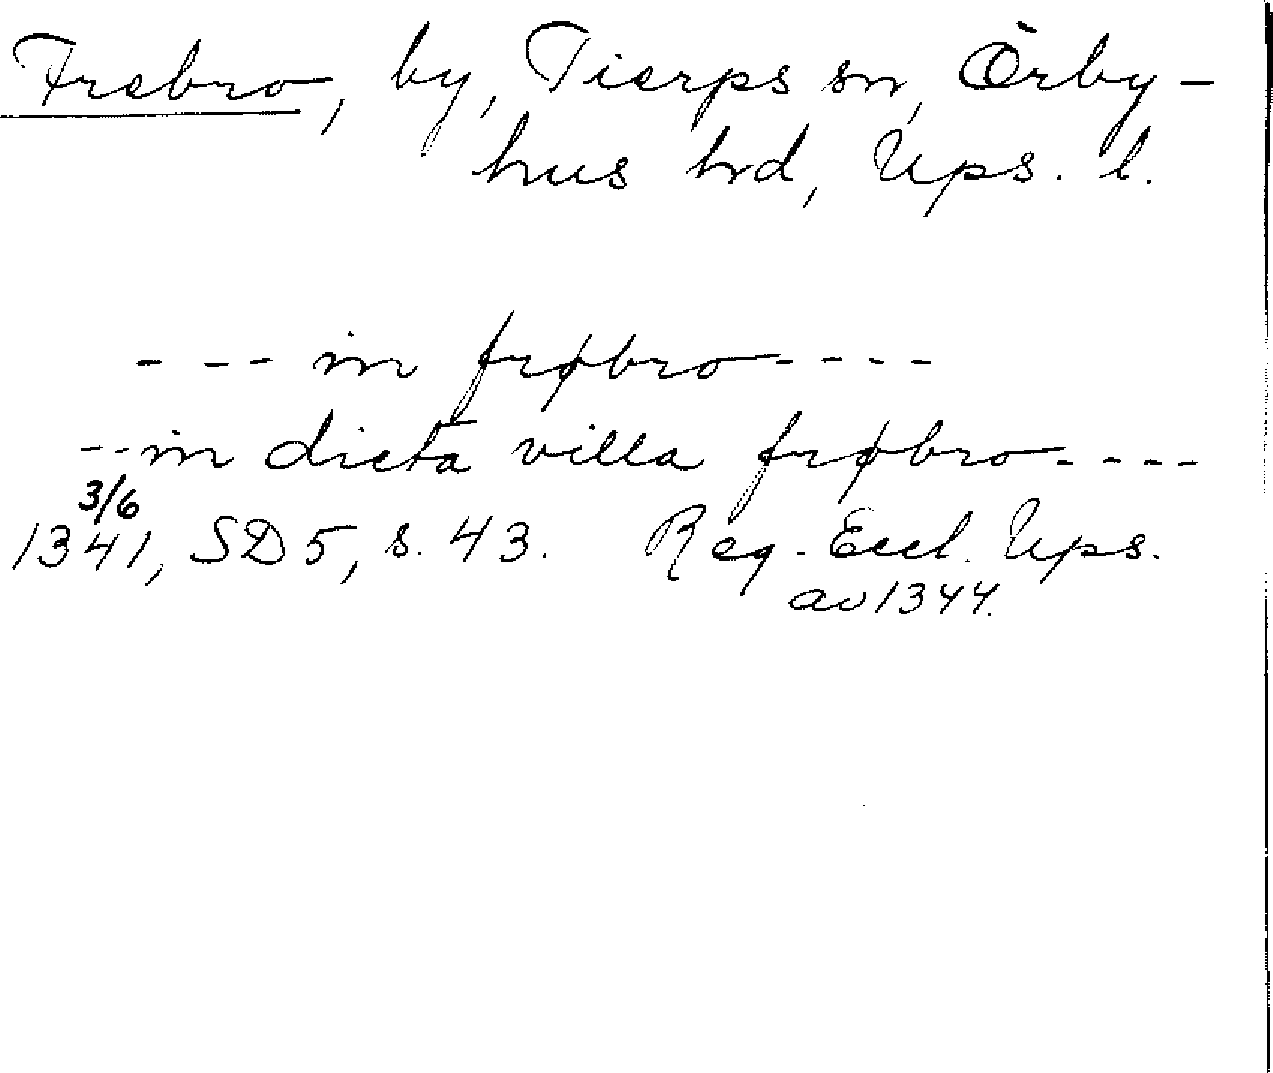 Frebro, by, Tierps sn, Örby-
hus hrd, Ups. l.
- - - in frøbro - - - -
- - in dicta villa frøbro - - - -
3/6
1341, SD 5, s. 43. Reg. Eccl. Ups.
av 1344.